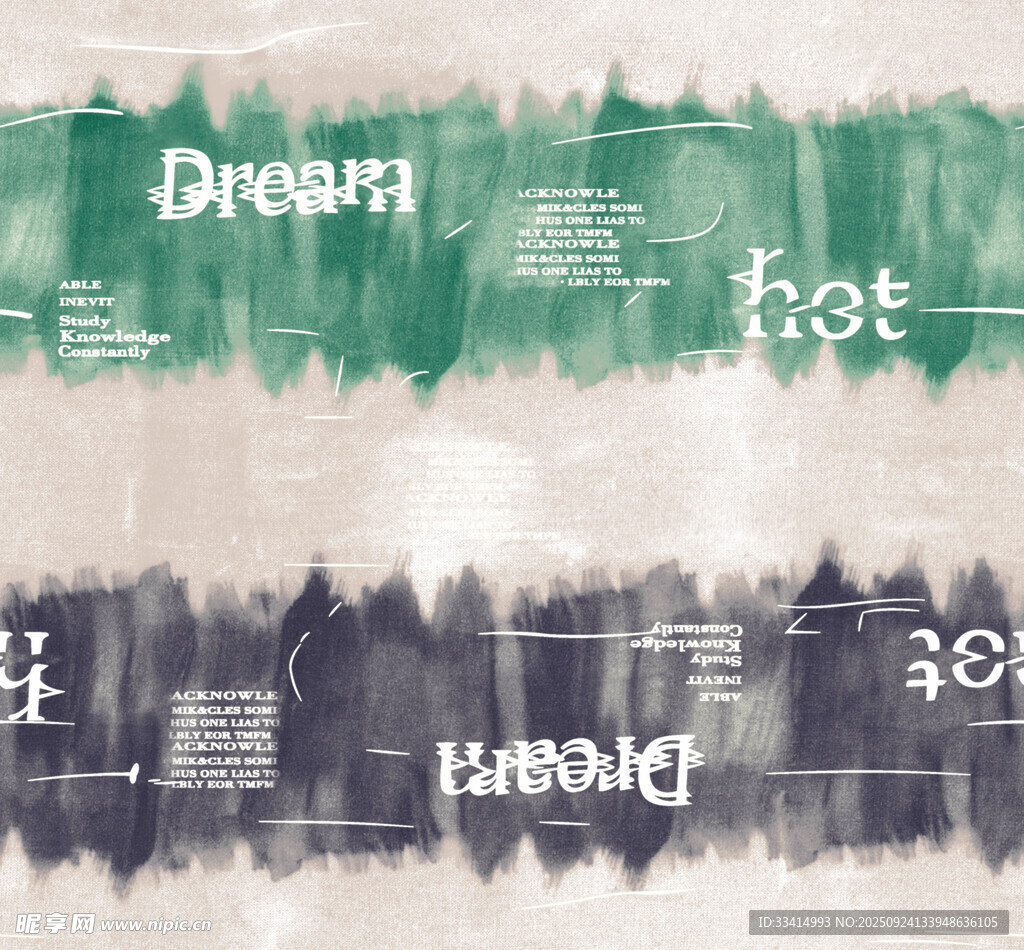 Dream
ACKNOWLE
MIK&CLES SOMI
HUS ONE LIAS TO
BLY EOR TMFM
ACKNOWLE
MIK&CLES SOMI
HUS ONE LIAS TO
LBLY EOR TMFM
hot
ABLE
INEVIT
Study
Knowledge
Constantly
ACKNOWLE
LBLY EOR TMFM
Constantly
Knowledge
Study
INEVIT
ABLE
hot
ACKNOWLE
MIK&CLES SOMI
HUS ONE LIAS TO
LBLY EOR TMFM
ACKNOWLE
MIK&CLES SOMI
HUS ONE LIAS TO
LBLY EOR TMFM
Dream
昵享网 www.nipic.cn
ID:33414993 NO:20250924133948636105